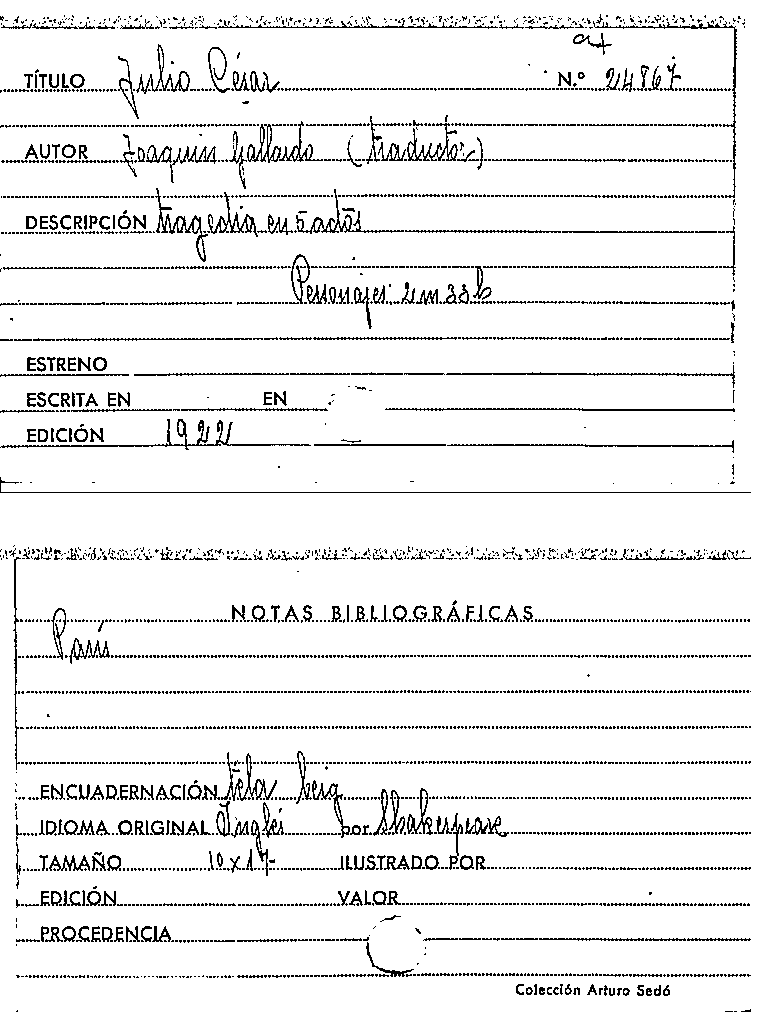 TÍTULO Julio César N.º 24867
AUTOR Joaquin Gallardo (traductor)
DESCRIPCIÓN tragedia en 5 actos
Personajes: 2 m 33 h
ESTRENO
ESCRITA EN EN
EDICIÓN 1922
NOTAS BIBLIOGRÁFICAS
París
ENCUADERNACIÓN tela beig
IDIOMA ORIGINAL Inglés por Shakespeare
TAMAÑO 10 x 17 ILUSTRADO POR
EDICIÓN VALOR
PROCEDENCIA
Colección Arturo Sedó